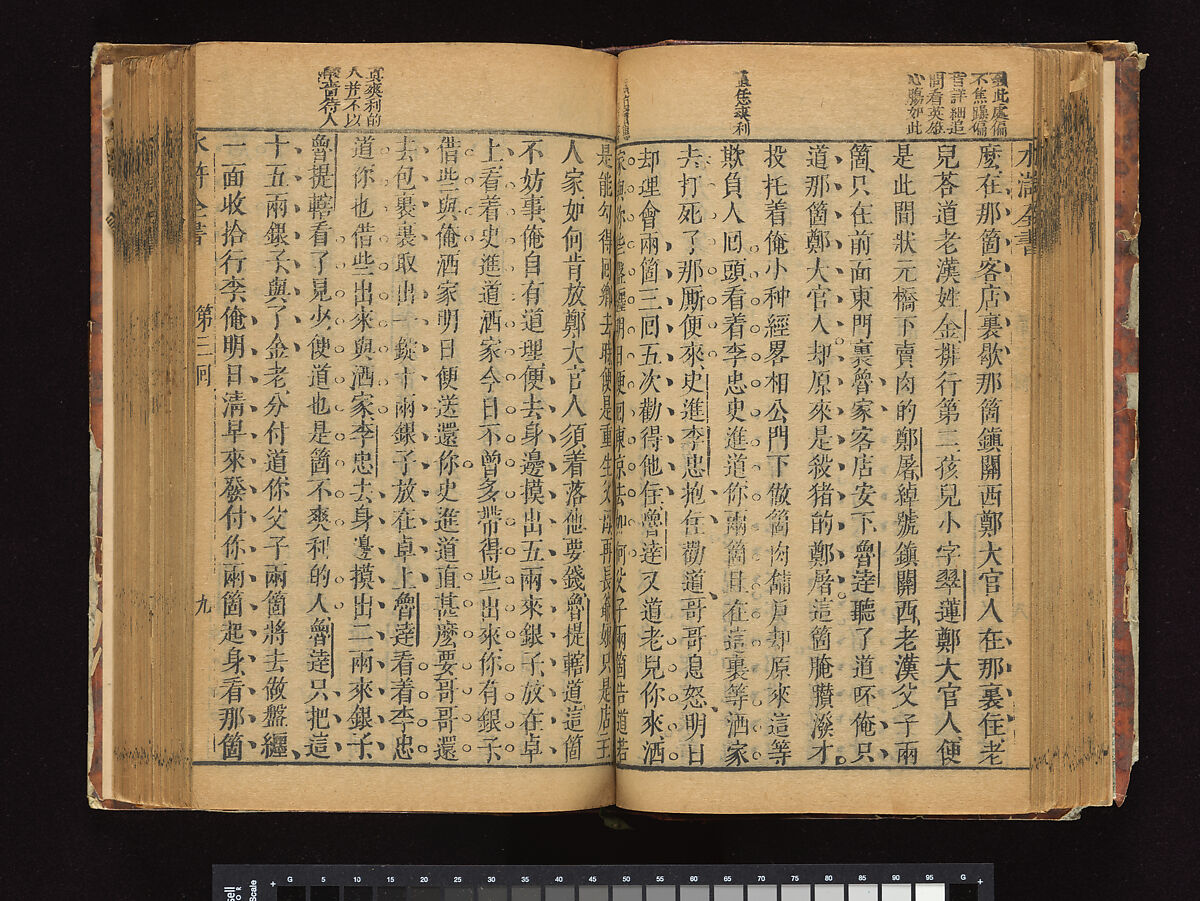 此處偏
不焦躁偏
肯詳細追
問看英雄
心腸如此
爽利
水滸全書
麼在那箇客店裏歇那箇鎮關西鄭大官人在那裏住老
兒荅道老漢姓金排行第二孩兒小字翠蓮鄭大官人便
是此間狀元橋下賣肉的鄭屠綽號鎮關西老漢父子兩
箇只在前面東門裏魯家客店安下魯達聽了道呸俺只
道那箇鄭大官人却原來是殺猪的鄭屠這箇腌臢潑才
投托着俺小种經畧相公門下做箇肉舖戶却原來這等
欺負人回頭看着李忠史進道你兩箇且在這裏等洒家
去打死了那厮便來史進李忠抱住勸道哥哥息怒明日
却理會兩箇三回五次勸得他住魯達又道老兒你來洒
家與你些盤纏明日便回東京去如何父子兩箇告道若
是能勾得回鄉去時便是重生父母再長爺娘只是店主
人家如何肯放鄭大官人須着落他要錢魯提轄道這箇
不妨事俺自有道理便去身邊摸出五兩來銀子放在卓
上看着史進道洒家今日不曾多帶得些出來你有銀子
借些與俺洒家明日便送還你史進道直甚麼要哥哥還
去包裹裏取出一錠十兩銀子放在卓上魯達看着李忠
道你也借些出來與洒家李忠去身邊摸出二兩來銀子
魯提轄看了見少便道也是箇不爽利的人魯達只把這
十五兩銀子與了金老分付道你父子兩箇將去做盤纏
一面收拾行李俺明日清早來發付你兩箇起身看那箇
真爽利的
人并不以
嗇待人
水滸全書 第三回 九
5 10 15 20 25 30 35 40 45 50 55 60 65 70 75 80 85 90 95
Scale